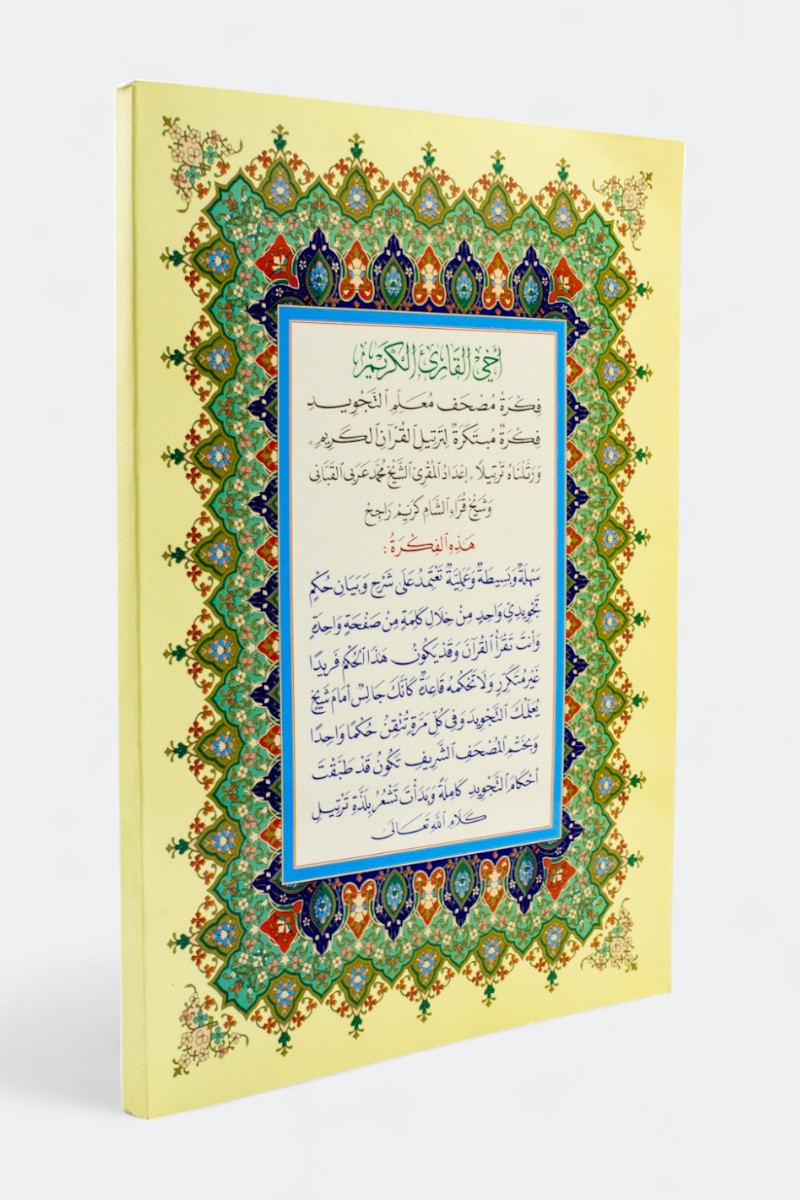 أَخِي القَارِئَ الكَرِيْمُ
فِكْرَةُ مُصْحَفِ مُعَلِّمِ التَّجْوِيدِ
فِكْرَةٌ مُبْتَكَرَةٌ لِتَرْتِيلِ القُرْآنِ الكَرِيمِ،
وَرَتَّلْنَاهُ تَرْتِيلًا، إِعْدَادُ المُقْرِئِ الشَّيْخِ مُحَمَّد عَرَبِي القَبَّانِي
وَشَيْخِ قُرَّاءِ الشَّامِ كُرَيِّم رَاجِح
هَذِهِ الفِكْرَةُ :
سَهْلَةٌ وَبَسِيطَةٌ وَعَمَلِيَّةٌ تَعْتَمِدُ عَلَى شَرْحِ وَبَيَانِ حُكْمٍ
تَجْوِيدِيٍّ وَاحِدٍ مِنْ خِلَالِ كَلِمَةٍ مِنْ صَفْحَةٍ وَاحِدَةٍ
وَأَنْتَ تَقْرَأُ القُرْآنَ وَقَدْ يَكُونُ هَذَا الحُكْمُ فَرِيدًا
غَيْرَ مُتَكَرِّرٍ وَلَا تَحْكُمُهُ قَاعِدَةٌ كَأَنَّكَ جَالِسٌ أَمَامَ شَيْخٍ
يُعَلِّمُكَ التَّجْوِيدَ وَفِي كُلِّ مَرَّةٍ تُتْقِنُ حُكْمًا وَاحِدًا
وَبِخَتْمِ المُصْحَفِ الشَّرِيفِ تَكُونُ قَدْ طَبَّقْتَ
أَحْكَامَ التَّجْوِيدِ كَامِلَةً وَبَدَأْتَ تَشْعُرُ بِلَذَّةِ تَرْتِيلِ
كَلَامِ اللهِ تَعَالَى